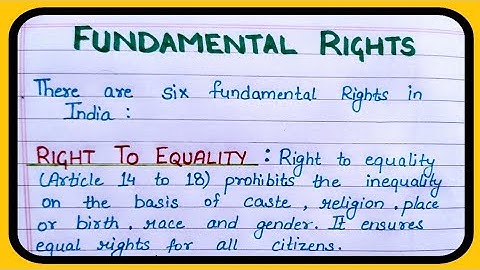 FUNDAMENTAL RIGHTS
There are six fundamental Rights in
India :
RIGHT TO EQUALITY : Right to equality
(Article 14 to 18) prohibits the inequality
on the basis of caste , religion , place
or birth , race and gender. It ensures
equal rights for all citizens.